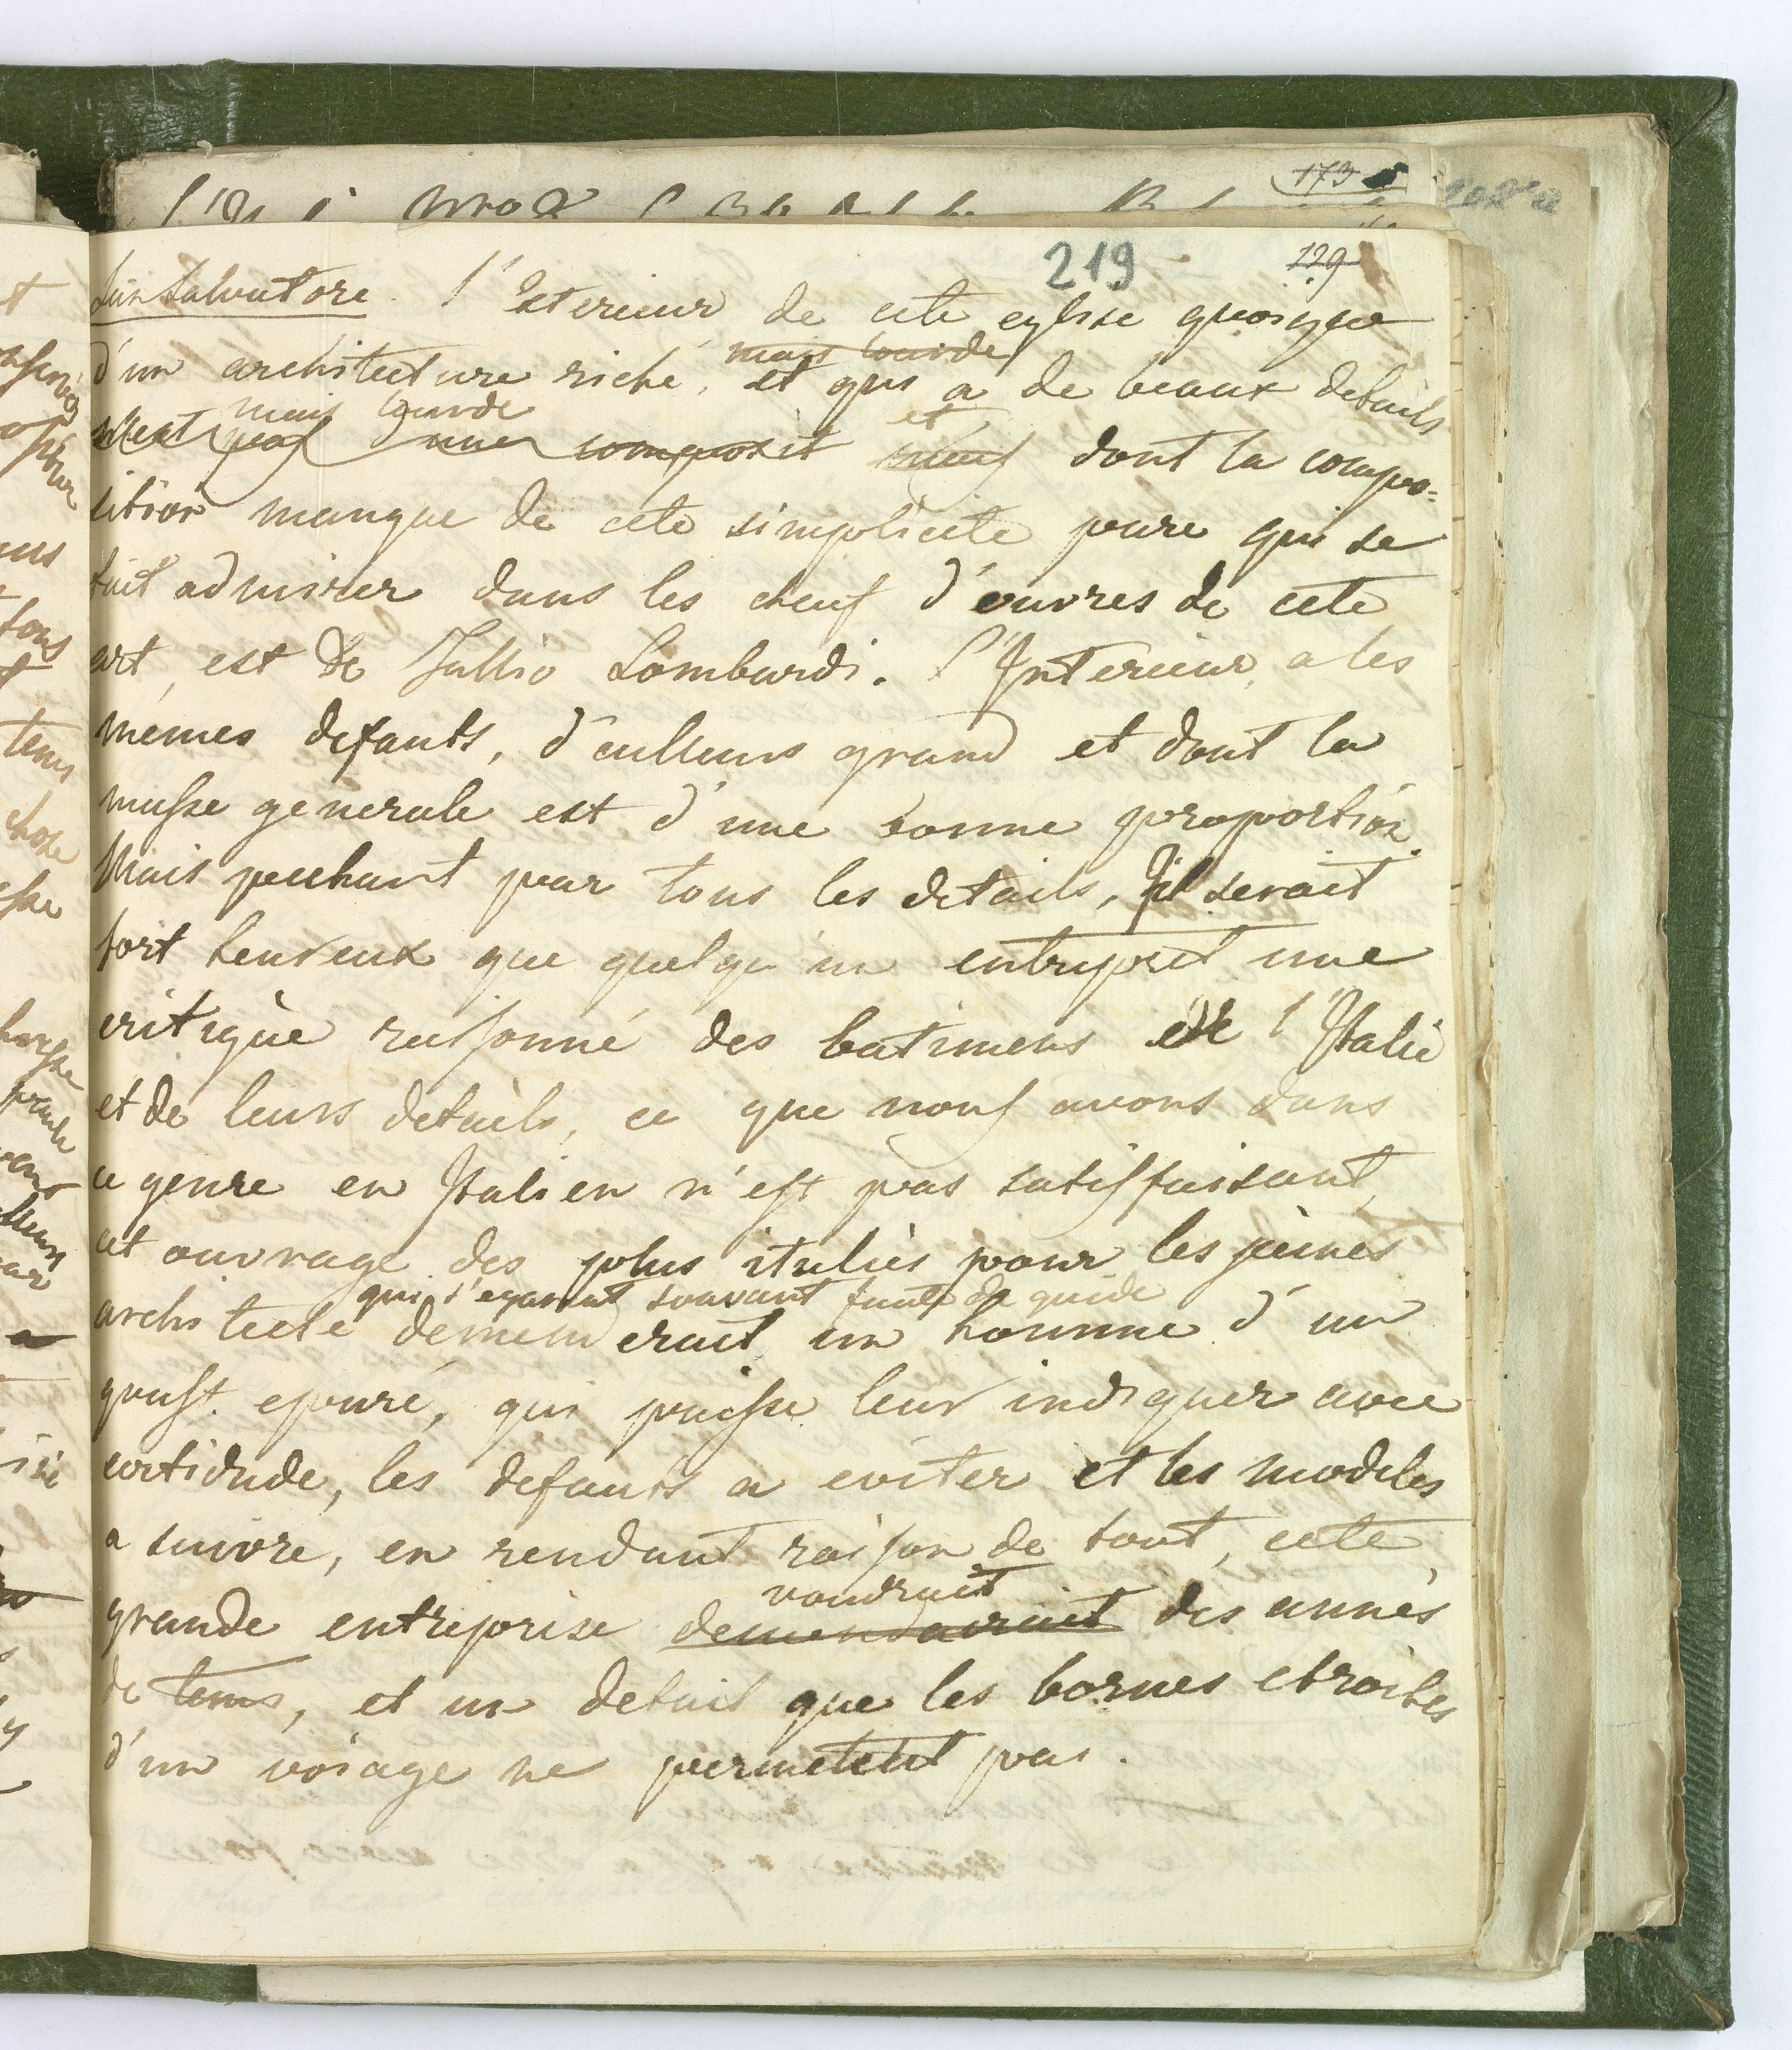 219 129
San Salvatore. l'Exterieur de cete eglise quoique
mais lourde
d'un architecture riche, et qui a de beaux details
mais lourde et
n'est pas une composit neuf dont la compo=
sition manque de cete simplicite pure qui se
fait admirer dans les cheuf d'ouvres de cete
art, est de Jullio Lombardi. l'Interieur, a les
mêmes defauts, d'ailleurs grand et dont la
masse generale est d'une bonne proportion.
Mais pechant par tous les details, Il serait
fort heureux que quelqu'un entreprit une
critique raisonné des batimens de l'Italie
et de leurs details, ce que nous avons dans
ce genre en Italien n'est pas satisfaisant,
cet ouvrage des plus utules pour les jeunes
qui s'egarent souvant faute de guide
architecte demenderait un homme d'un
goust epuré, qui puisse leur indiquer avec
certidude, les defauts a eviter et les modeles
a suivre, en rendant raison de tout, cete
voudrait
grande entreprise demendairait des annés
de tems, et un detail que les bornes etroites
d'un voiage ne permetent pas.